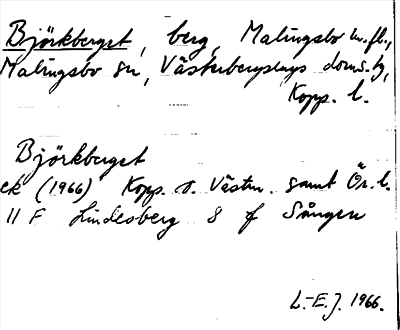 Björkberget, berg, Malingsbo m.fl.,
Malingsbo sn, Västerbergslags doms.tg,
Kopp. l.
Björkberget
ek (1966) Kopp. o. Västm. samt Ör. l.
11 F Lindesberg 8 f Sången
L.-E.J. 1966.